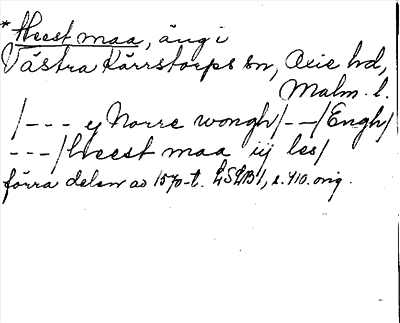 *Heest maa, äng i
Västra Kärrstorps sn, Oxie hd,
Malm. l.
/--- ej Norre wongh/--/Engh/
---/heest maa iij les/
förra delen av 1570-t. LSLB1, s. 410. orig.